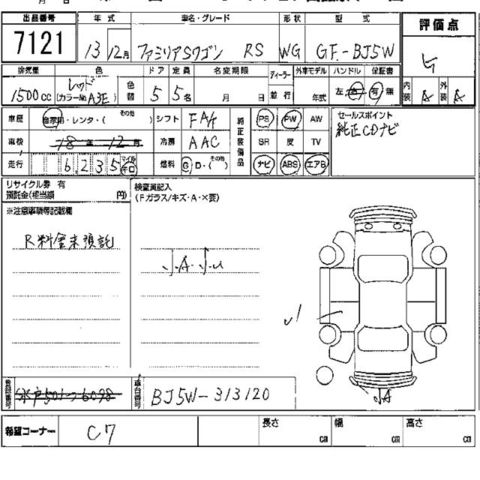 出品番号 年式 車名・グレード 形状 型式 評価点
7121 13年12月 ファミリアSワゴン RS WG GF-BJ5W
排気量 色 色替 ドア 定員 名変期限 ディーラー 外車モデル ハンドル 保証書 内装 A 外装 A
1500CC レッド (カラーNo A3E) 5 5名 月 日 並行 年式 左 右 有 無
車歴 自家用・レンタ・(その他) シフト FA/T 純正装備品 PS PW AW セールスポイント
車検 78年12月 冷房 AAC SR 皮 TV 純正CDナビ
走行 6235 マイル キロ 燃料 G・D・(その他) ナビ ABS エアB
リサイクル券 有 検査員記入
預託金(相当額 円) (Fガラス/キズ・A・×要)
※注意事項等記載欄
R料金未預託
J.A.J.u
登録番号 水戸501つ6098 車台番号 BJ5W-313120
A
希望コーナー C7 長さ cm 幅 cm 高さ cm